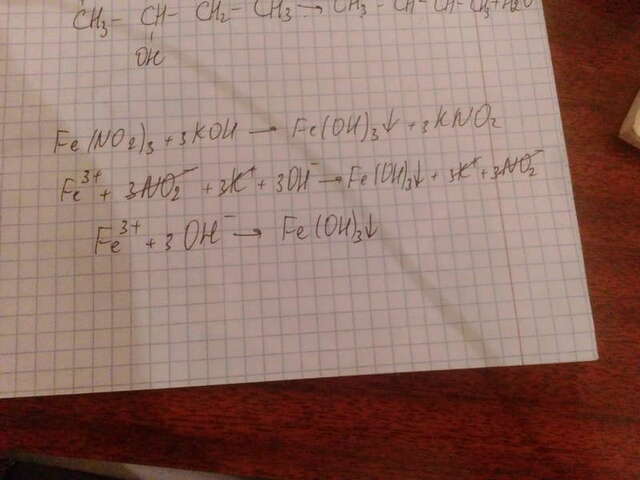 CH₃- CH- CH₂- CH₃ → CH₃ - CH - CH - CH₃ + H₂O
OH
Fe(NO₂)₃ + 3KOH → Fe(OH)₃↓ + 3KNO₂
Fe³⁺ + 3NO₂⁻ + 3K⁺ + 3OH⁻ → Fe(OH)₃↓ + 3K⁺ + 3NO₂⁻
Fe³⁺ + 3OH⁻ → Fe(OH)₃↓